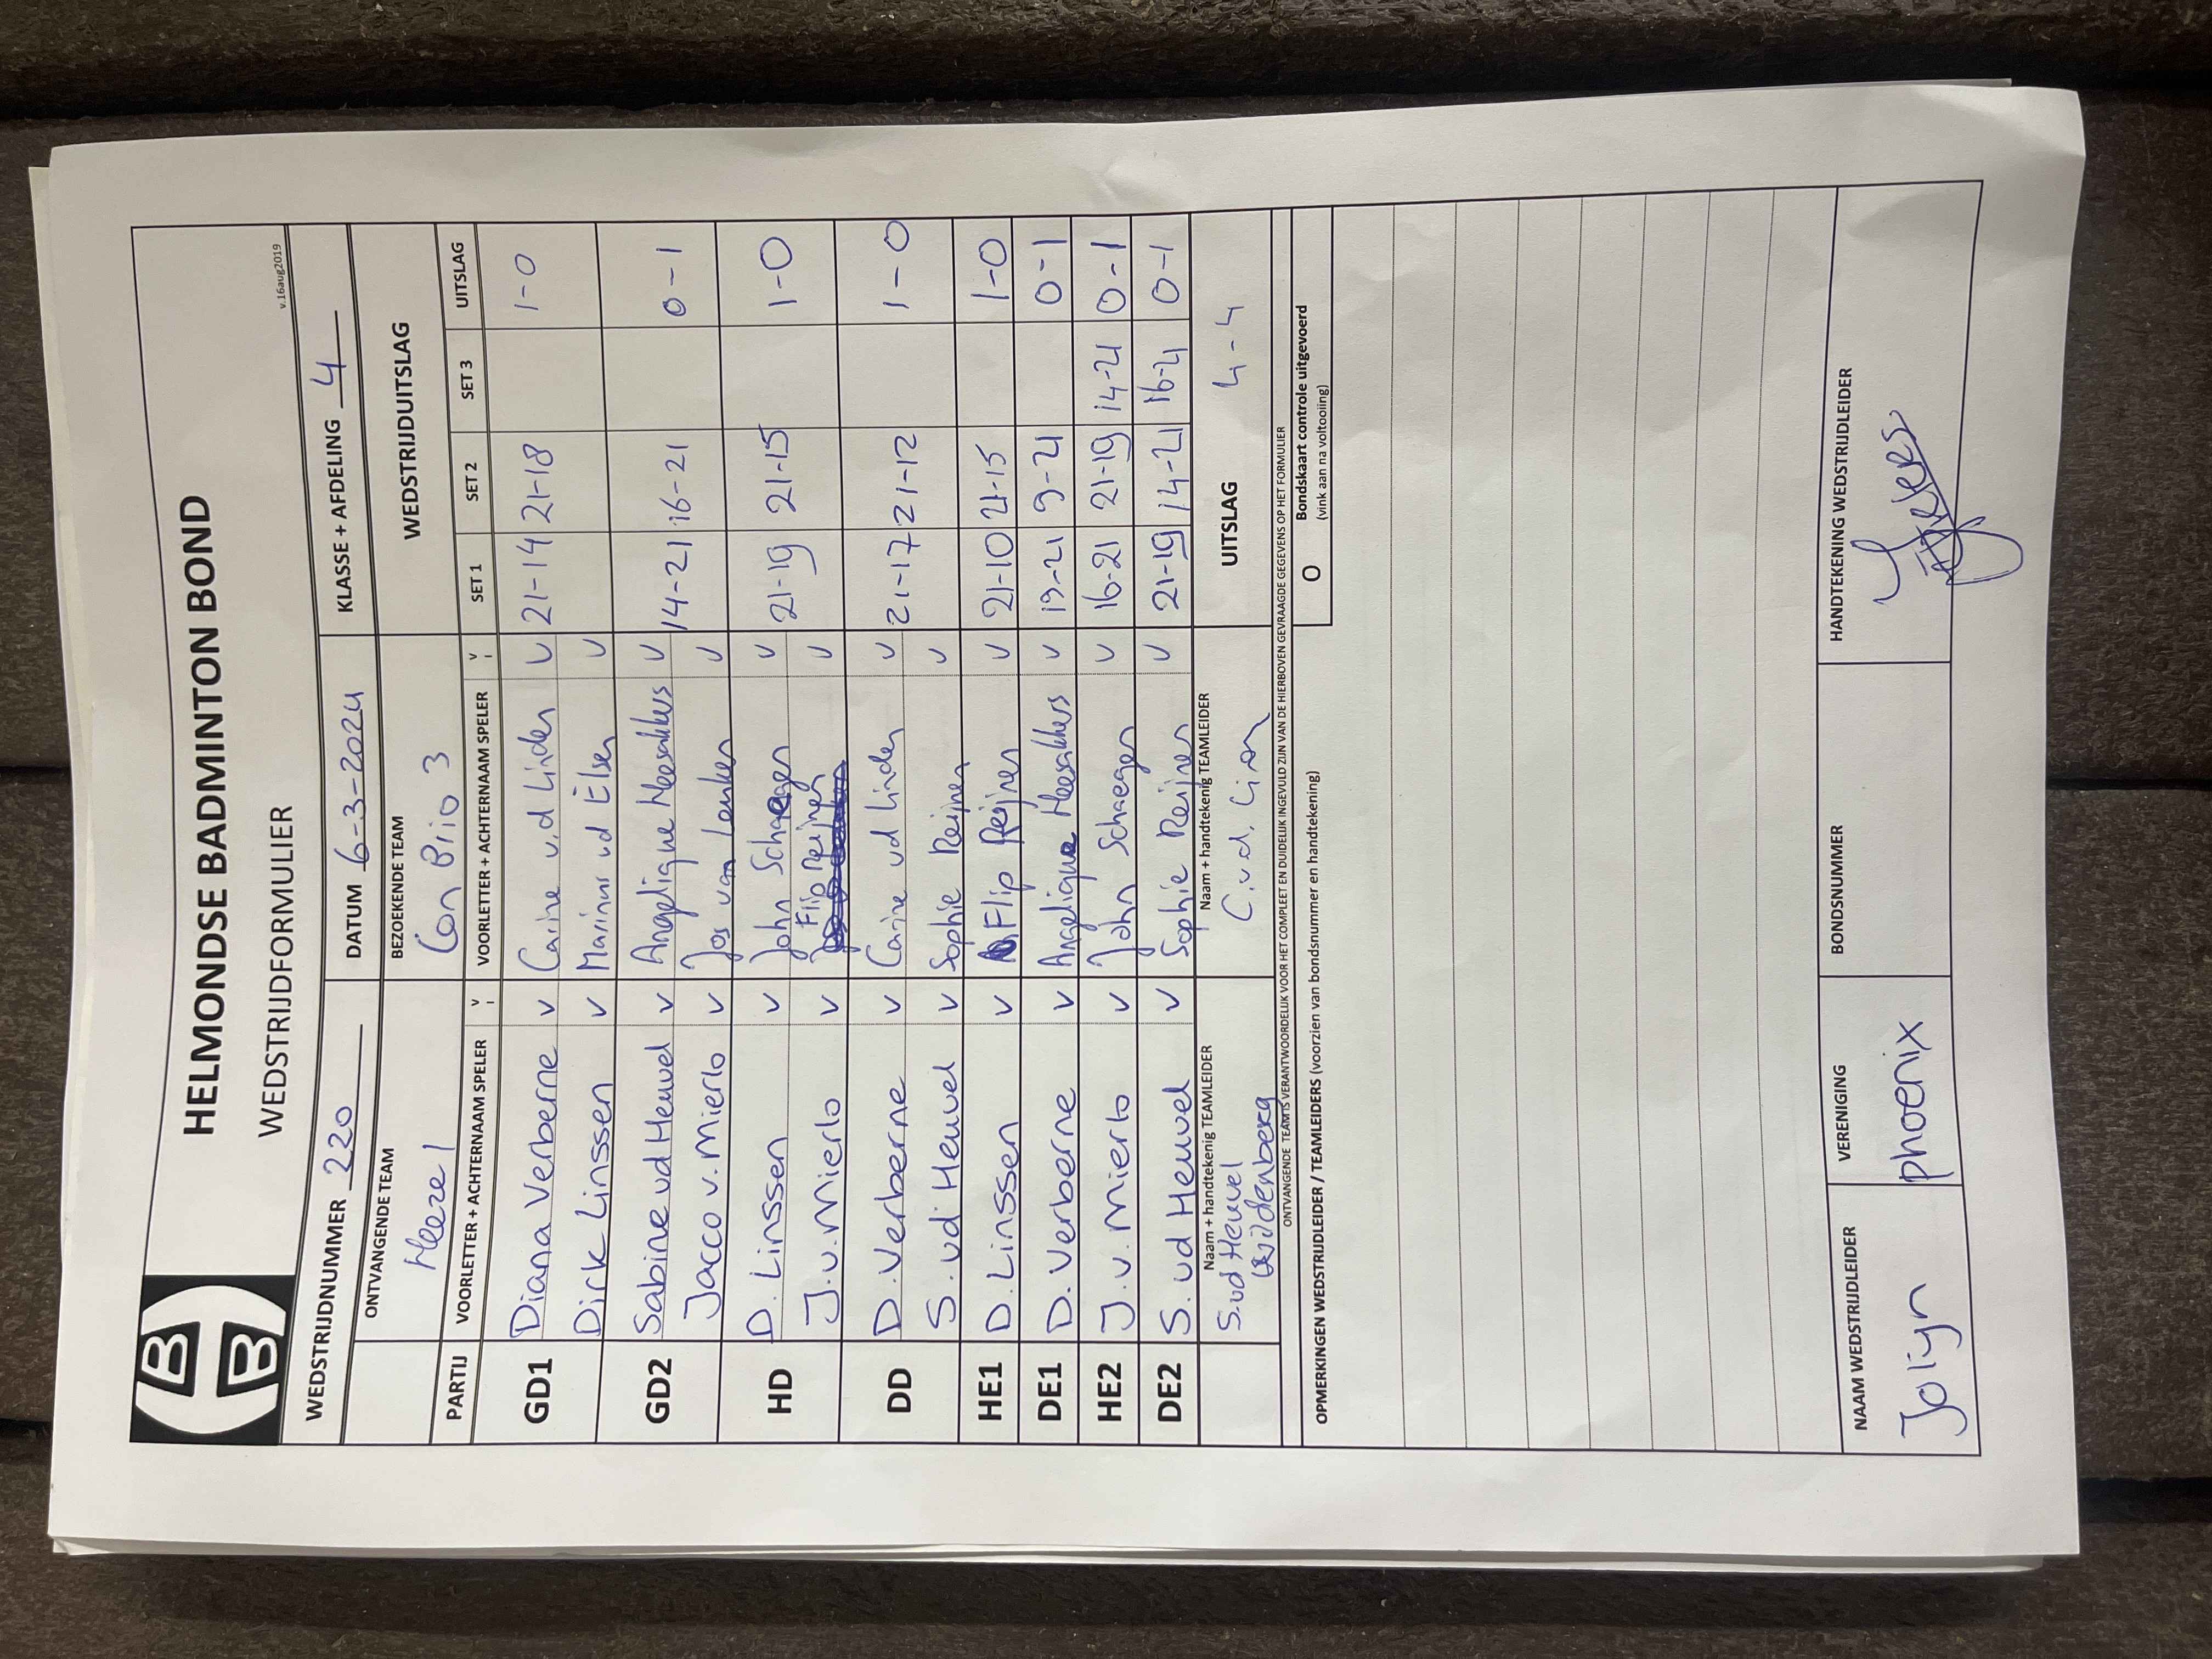 HELMONDSE BADMINTON BOND
WEDSTRIJDFORMULIER
v.16aug2019
WEDSTRIJDNUMMER 220 DATUM 6-3-2024 KLASSE + AFDELING 4
ONTVANGENDE TEAM BEZOEKENDE TEAM WEDSTRIJDUITSLAG
Heeze 1 Con Brio 3
PARTIJ VOORLETTER + ACHTERNAAM SPELER V VOORLETTER + ACHTERNAAM SPELER V SET 1 SET 2 SET 3 UITSLAG
GD1 Diana Verberne v Carine v.d Linden v 21-14 21-18 1-0
Dirk Linssen v Marinus vd Elsen v
GD2 Sabine vd Heuvel v Angelique Heesakkers v 14-21 16-21 0-1
Jacco v. Mierlo v Jos van Lanken v
HD D. Linssen v John Schaegen v 21-19 21-15 1-0
J. v. Mierlo v Flip Reijnen v
DD D. Verberne v Carine vd Linden v 21-17 21-12 1-0
S. vd Heuvel v Sophie Reijnen v
HE1 D. Linssen v Flip Reijnen v 21-10 21-15 1-0
DE1 D. Verberne v Angelique Heesakkers v 19-21 9-21 0-1
HE2 J. v. Mierlo v John Schaegen v 16-21 21-19 14-21 0-1
DE2 S. vd Heuvel v Sophie Reijnen v 21-19 14-21 16-21 0-1
Naam + handtekenig TEAMLEIDER Naam + handtekenig TEAMLEIDER UITSLAG 4-4
S. vd Heuvel C.v.d.
ONTVANGENDE TEAM IS VERANTWOORDELIJK VOOR HET COMPLEET EN DUIDELIJK INGEVULD ZIJN VAN DE HIERBOVEN GEVRAAGDE GEGEVENS OP HET FORMULIER
OPMERKINGEN WEDSTRIJDLEIDER / TEAMLEIDERS (voorzien van bondsnummer en handtekening) O Bondskaart controle uitgevoerd
(vink aan na voltooiing)
NAAM WEDSTRIJDLEIDER VERENIGING BONDSNUMMER HANDTEKENING WEDSTRIJDLEIDER
Jolijn phoenix